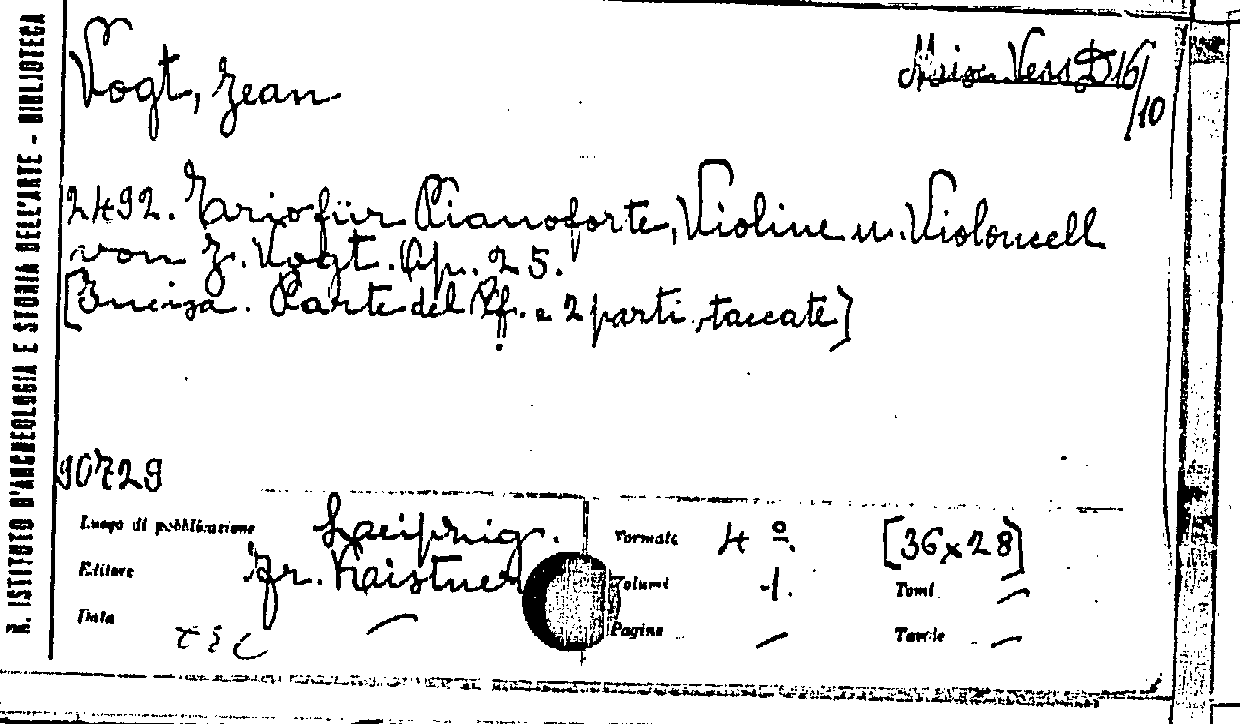 R. ISTITUTO D'ARCHEOLOGIA E STORIA DELL'ARTE - BIBLIOTECA
Vogt, Jean
Mus. Vess D16/10
2492. Trio für Pianoforte, Violine u. Violoncell
von J. Vogt. Op. 25.
[Incisa. Parte del Pf. e 2 parti staccate]
90729
Luogo di pubblicazione Leipzig.
Formato 4º. [36x28]
Editore Fr. Kistner
Volumi 1. Tomi —
Data —
Pagine — Tavole —